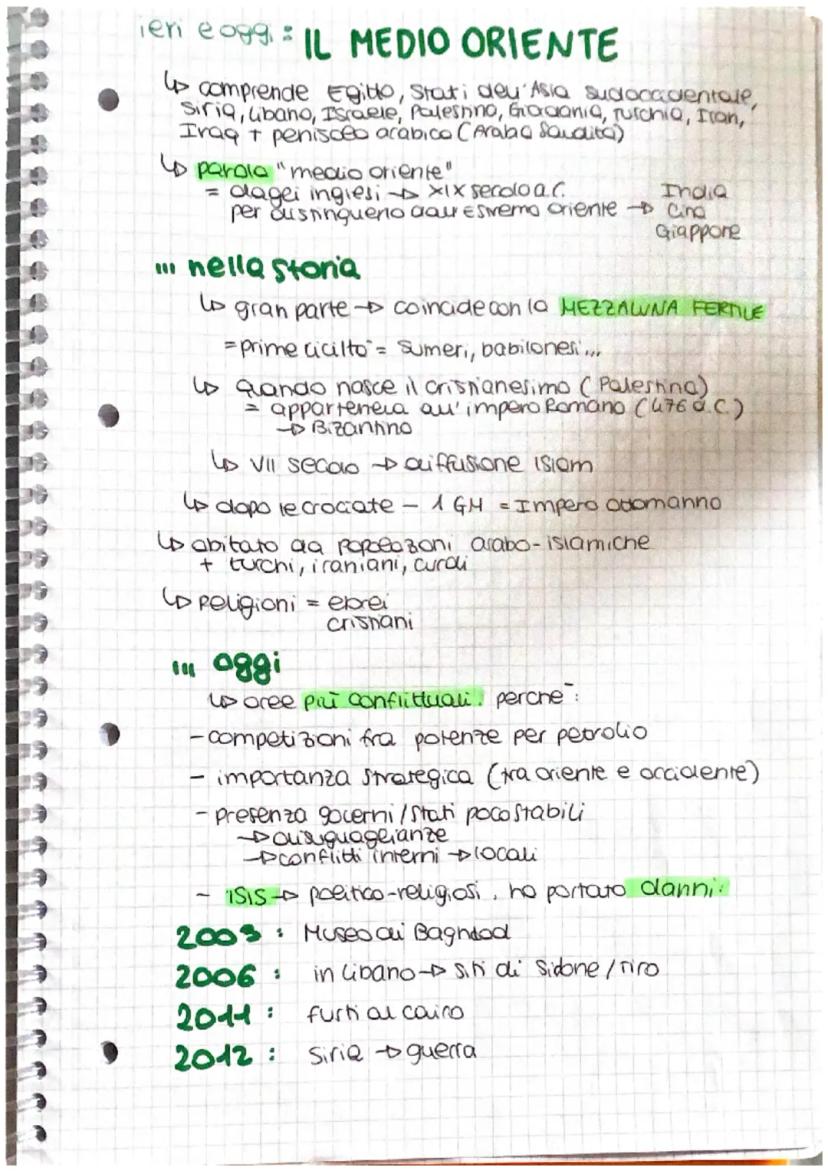 ieri e oggi: IL MEDIO ORIENTE
↳ comprende Egitto, Stati dell'Asia sudoccidentale,
Siria, Libano, Israele, Palestina, Giordania, Turchia, Iran,
Iraq + penisola arabica (Arabia Saudita)
↳ parola "medio oriente"
= dagli inglesi → XIX secolo a.C.
India
per distinguerlo dall'Estremo oriente → Cina
Giappone
... nella storia
↳ gran parte → coincide con la MEZZALUNA FERTILE
= prime civiltà = Sumeri, babilonesi...
↳ quando nasce il cristianesimo (Palestina)
= apparteneva all'impero Romano (476 d.C.)
→ Bizantino
↳ VII secolo → diffusione Islam
↳ dopo le crociate - 1 GM = Impero ottomanno
↳ abitato da popolazioni arabo-islamiche
+ turchi, iraniani, curdi
↳ religioni = ebrei
cristiani
... oggi
↳ aree più conflittuali. perché:
- competizioni fra potenze per petrolio
- importanza strategica (tra oriente e occidente)
- presenza governi/stati poco stabili
→ disuguaglianze
→ conflitti interni → locali
- ISIS → politico-religiosi, ha portato danni:
2003: Museo di Baghdad
2006: in Libano → siti di Sidone/Tiro
2011: furti al cairo
2012: Siria → guerra